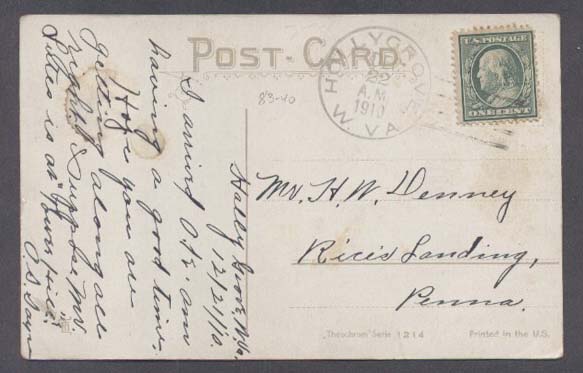 POST-CARD.
HOLLYGROVE
DEC
22
A.M.
1910
W. VA.
U.S. POSTAGE
ONE CENT
83-40
Holly Grove, W. Va.
12/21/10.
I arrived O.K. am
having a good time.
Hope you are
getting along all
right. I suppose Mr.
Lilies is at
Mr. H. W. Denney
Rices Landing,
Penna.
"Theochrom" Serie 1214
Printed in the U.S.